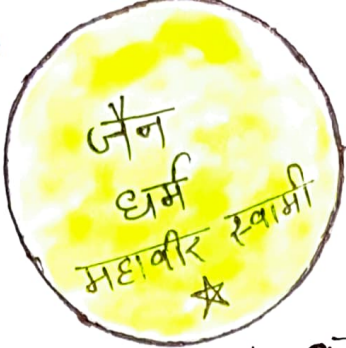 जैन
धर्म
महावीर स्वामी